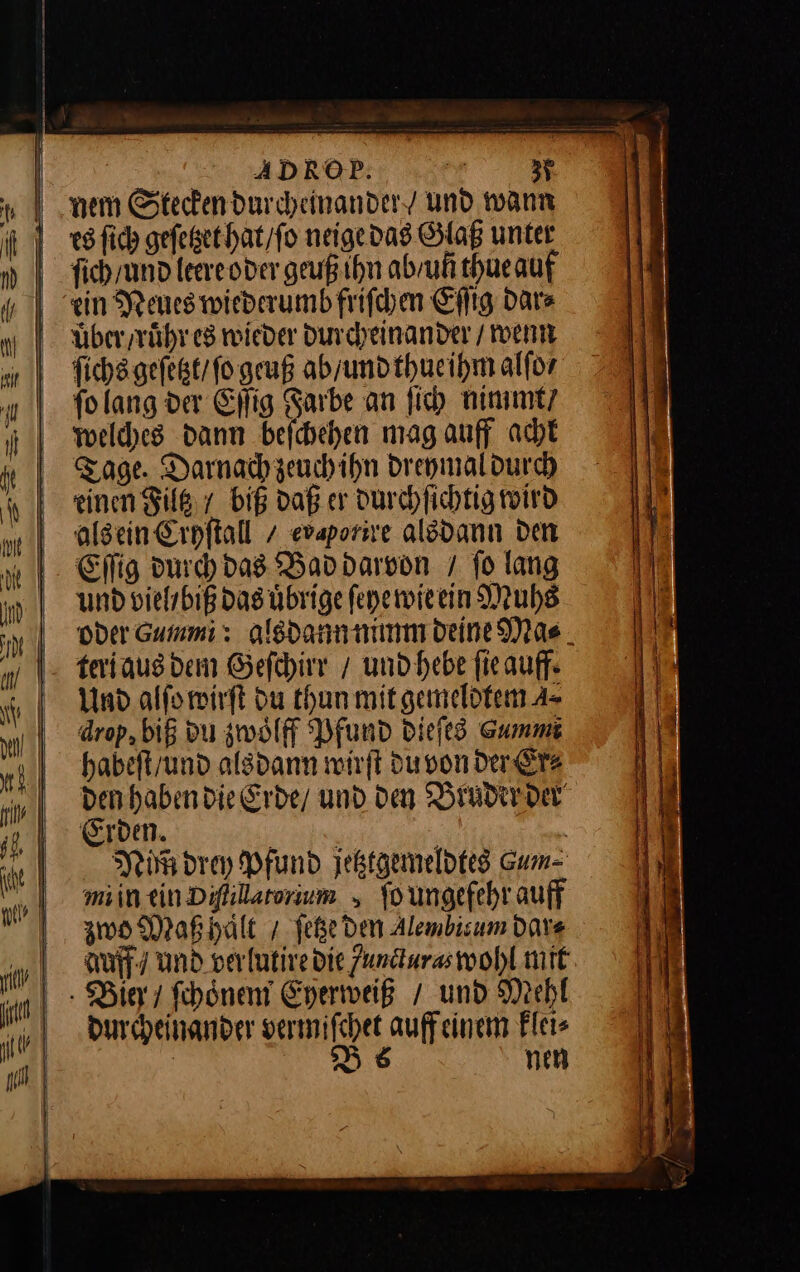 ADROP. 35
nem Stecken durcheinander / und wann
es ſich geſetzet hat / ſo neige das Glaß unter
ſich / und leere oder geuß ihn ab / uñ thue auf
ein Neues wiederumb friſchen Eſſig dar⸗
uͤber / ruͤhr es wieder durcheinander / wenn
ſichs geſetzt / ſo geuß ab / und thue ihm alſo /
ſo lang der Eſſig Farbe an ſich nimmt /
welches dann beſchehen mag auff acht
Tage. Darnach zeuch ihn dreymal durch
einen Filtz / biß daß er durchſichtig wird
als ein Cryſtall / evaporire alsdann den
Eſſig durch das Bad darvon / ſo lang
und viel / biß das uͤbrige ſeye wie ein Muhs
oder Gummi: alsdann nimm deine Ma⸗
teri aus dem Geſchirr / und hebe ſie auff.
Und alſo wirſt du thun mit gemeldtem A-
drop, biß du zwoͤlff Pfund dieſes Gummi
habeſt / und alsdann wirſt du von der Er⸗
den haben die Erde / und den Bruder der
Erden.
Nim̃ drey Pfund jetztgemeldtes Gum-
mi in ein Diſtillatorium , ſo ungefehr auff
zwo Maß haͤlt / ſetze den Alembicum dar⸗
auff / und verlutire die Juncturas wohl mit
Bier / ſchoͤnem Eyerweiß / und Mehl
durcheinander vermiſchet auff einem klei⸗
B 6 nen